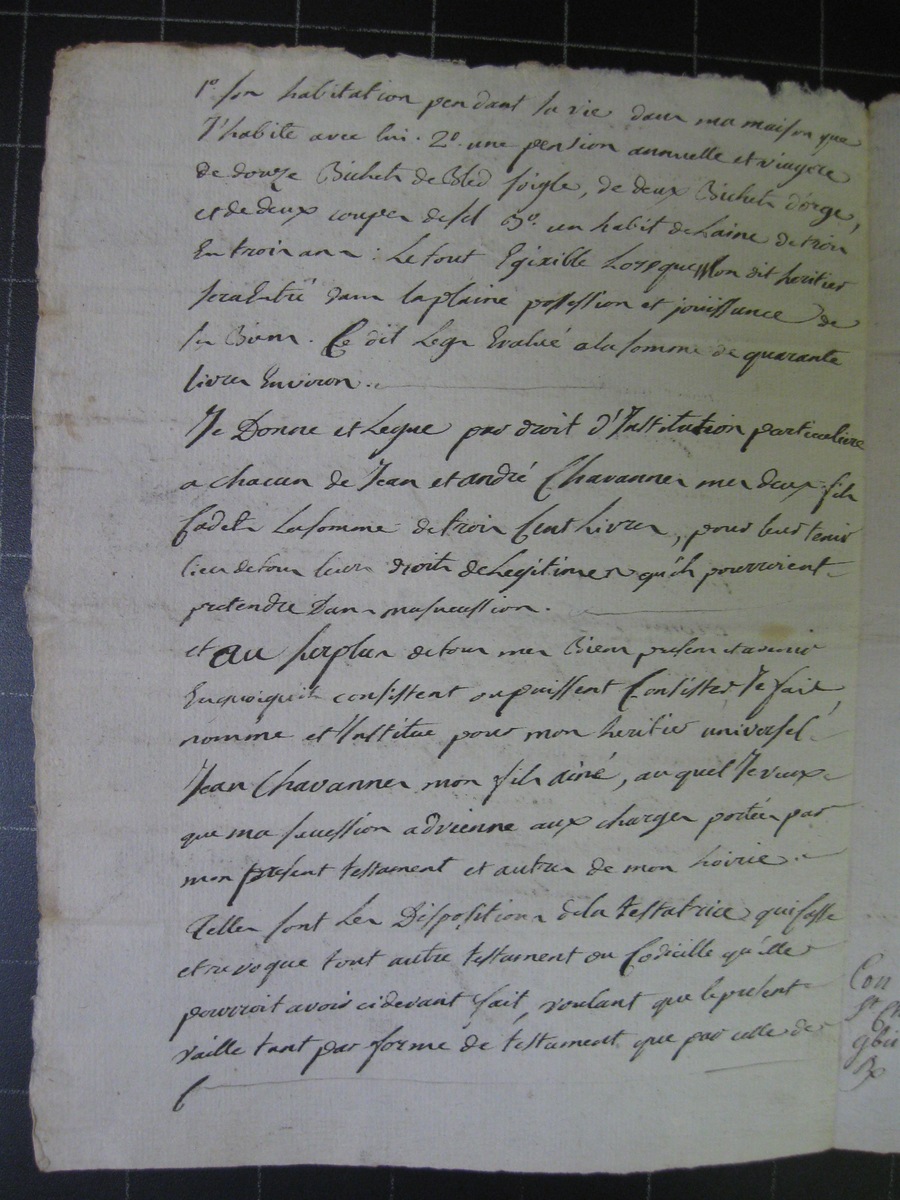 1° son habitation pendant sa vie dans ma maison que
J'habite avec lui. 2° une pension annuelle et viagere
de douze Bichets de Bled soigle, de deux Bichets d'orge,
et de deux coupes de sel 3° un habit de Laine de trois
En trois ans : Le tout Exigible Lorsque mon dit heritier
sera Entré dans la plaine possession et jouissance de
ses Biens. Ce dit Legs Evalué a la somme de quarante
livres Environ..
Je Donne et Legue par droit d'Institution particuliere
a chacun de Jean et andré Chavannes mes deux fils
Cadets La somme de trois Cent Livres, pour leur tenir
lieu de tous leurs droits de Legitimes qu'ils pourroient
pretendre Dans ma sucession.
et au surplus de tous mes Biens presens et avenir
En quoi qu'ils consistent ou puissent Consister Je fais
nomme et Institue pour mon heritier universel
Jean Chavannes mon fils ainé, au quel Je veux
que ma sucession advienne aux charges portées par
mon present testament et autres de mon hoirie.
Telles sont Les Dispositions de la testatrice qui casse
et revoque tout autre testament ou Codicille qu'elle
pourroit avoir cidevant fait, voulant que le present
vaille tant par forme de testament que par celle de
Con